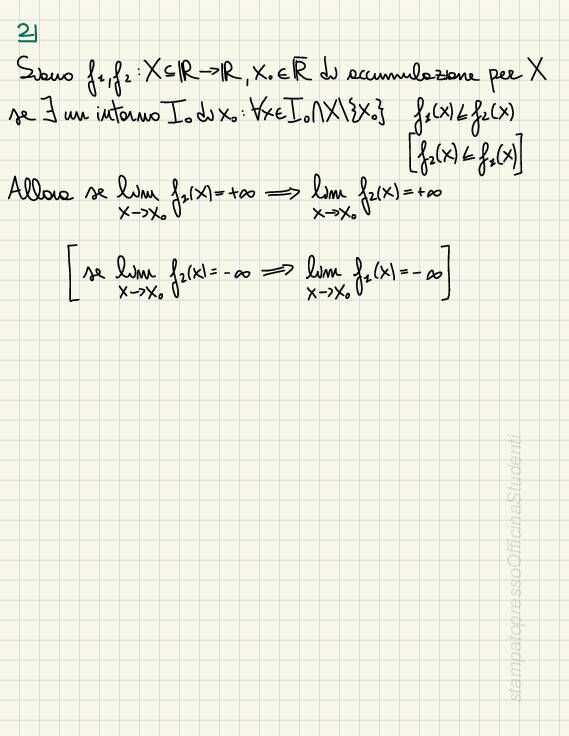 2)
Siano f₁,f₂ : X⊆ℝ→ℝ, x₀∈ℝ̅ di accumulazione per X
se ∃ un intorno I₀ di x₀ : ∀x∈I₀∩X\{x₀} f₁(x)≤f₂(x)
[f₂(x)≤f₁(x)]
Allora se lim x→x₀ f₁(x)=+∞ ⟹ lim x→x₀ f₂(x)=+∞
[se lim x→x₀ f₂(x)=-∞ ⟹ lim x→x₀ f₁(x)=-∞]
stampatopressoOfficinaStudenti